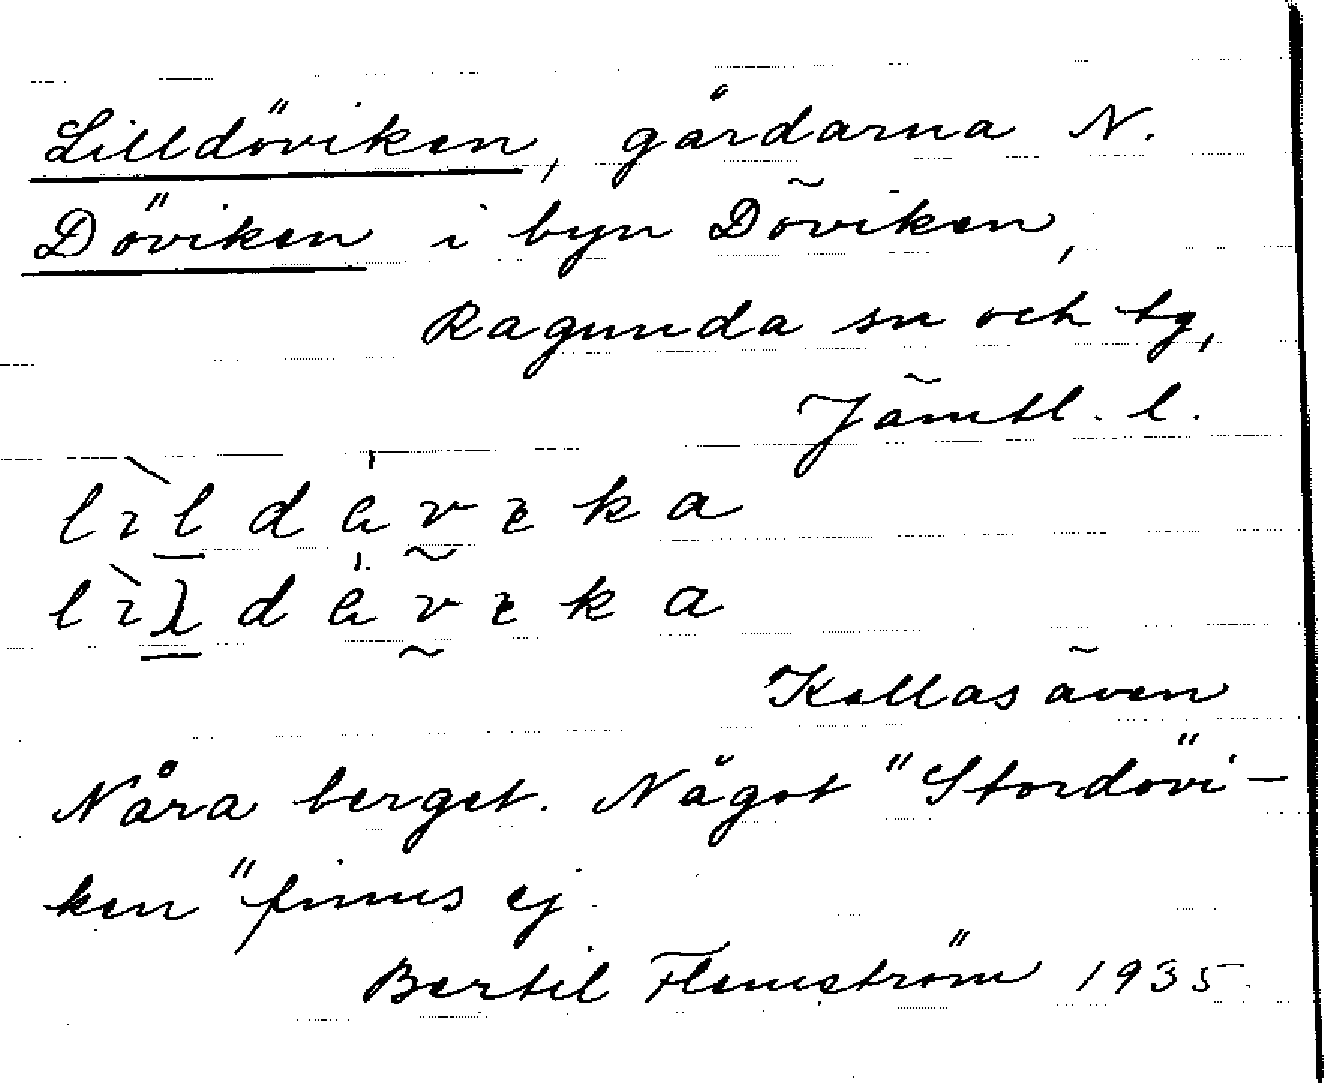 Lilldöviken, gårdarna N.
Döviken i byn Döviken,
Ragunda sn och tg,
Jämtl. l.
Kallas även
Nåra berget. Något "Stordövi-
ken" finnes ej.
Bertil Flemström 1935.